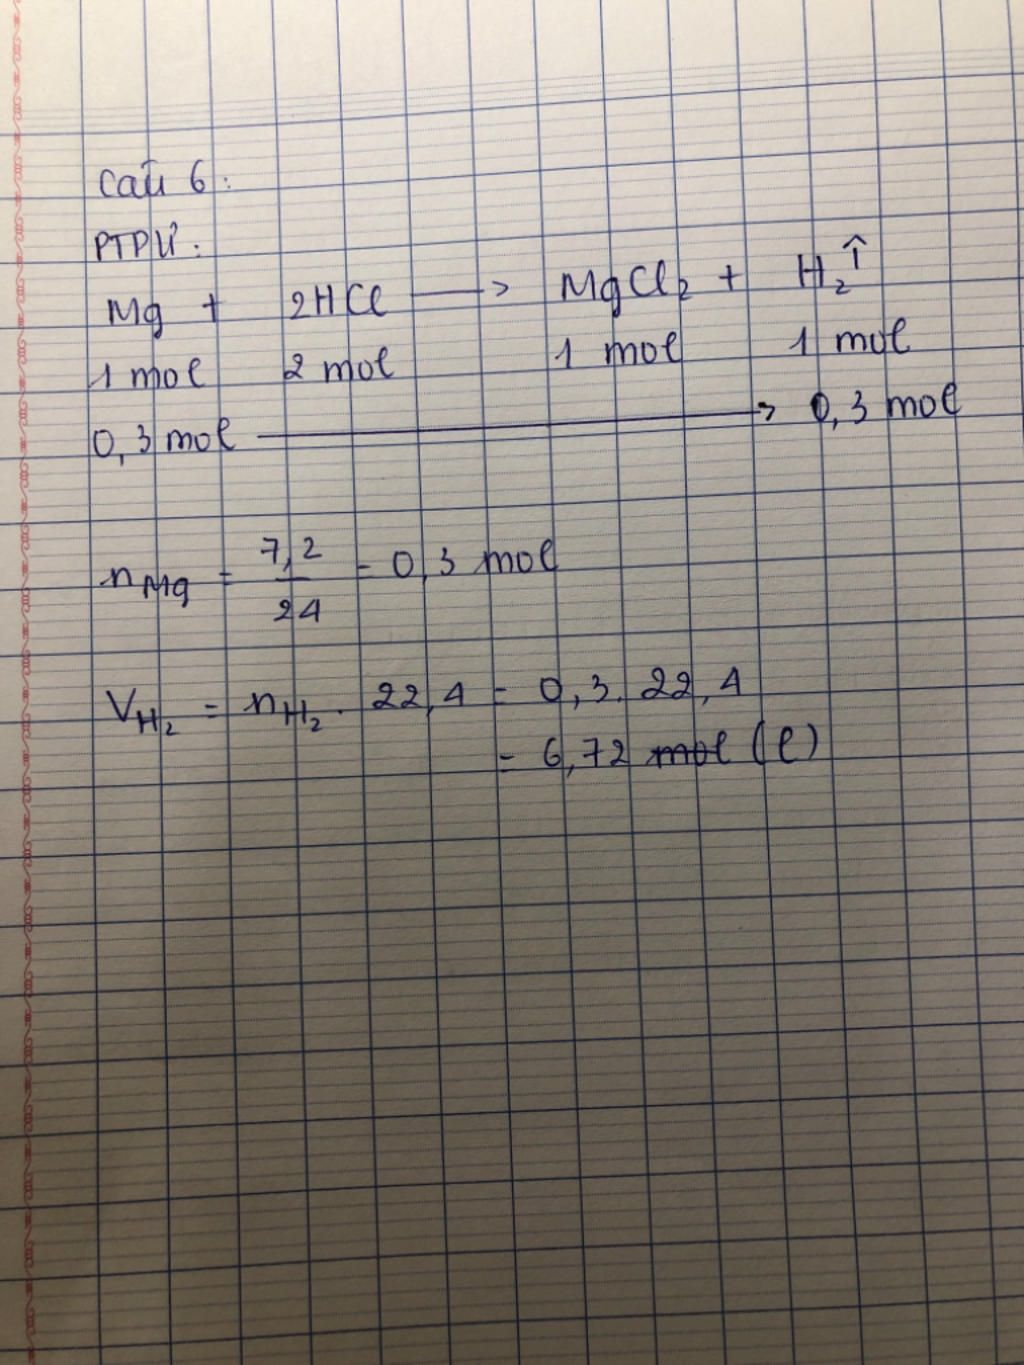 Câu 6:
PTPƯ:
Mg + 2HCl → MgCl₂ + H₂↑
1 mol 2 mol 1 mol 1 mol
0,3 mol → 0,3 mol
nMg = 7,2/24 = 0,3 mol
VH₂ = nH₂ . 22,4 = 0,3. 22,4
= 6,72 mol (l)